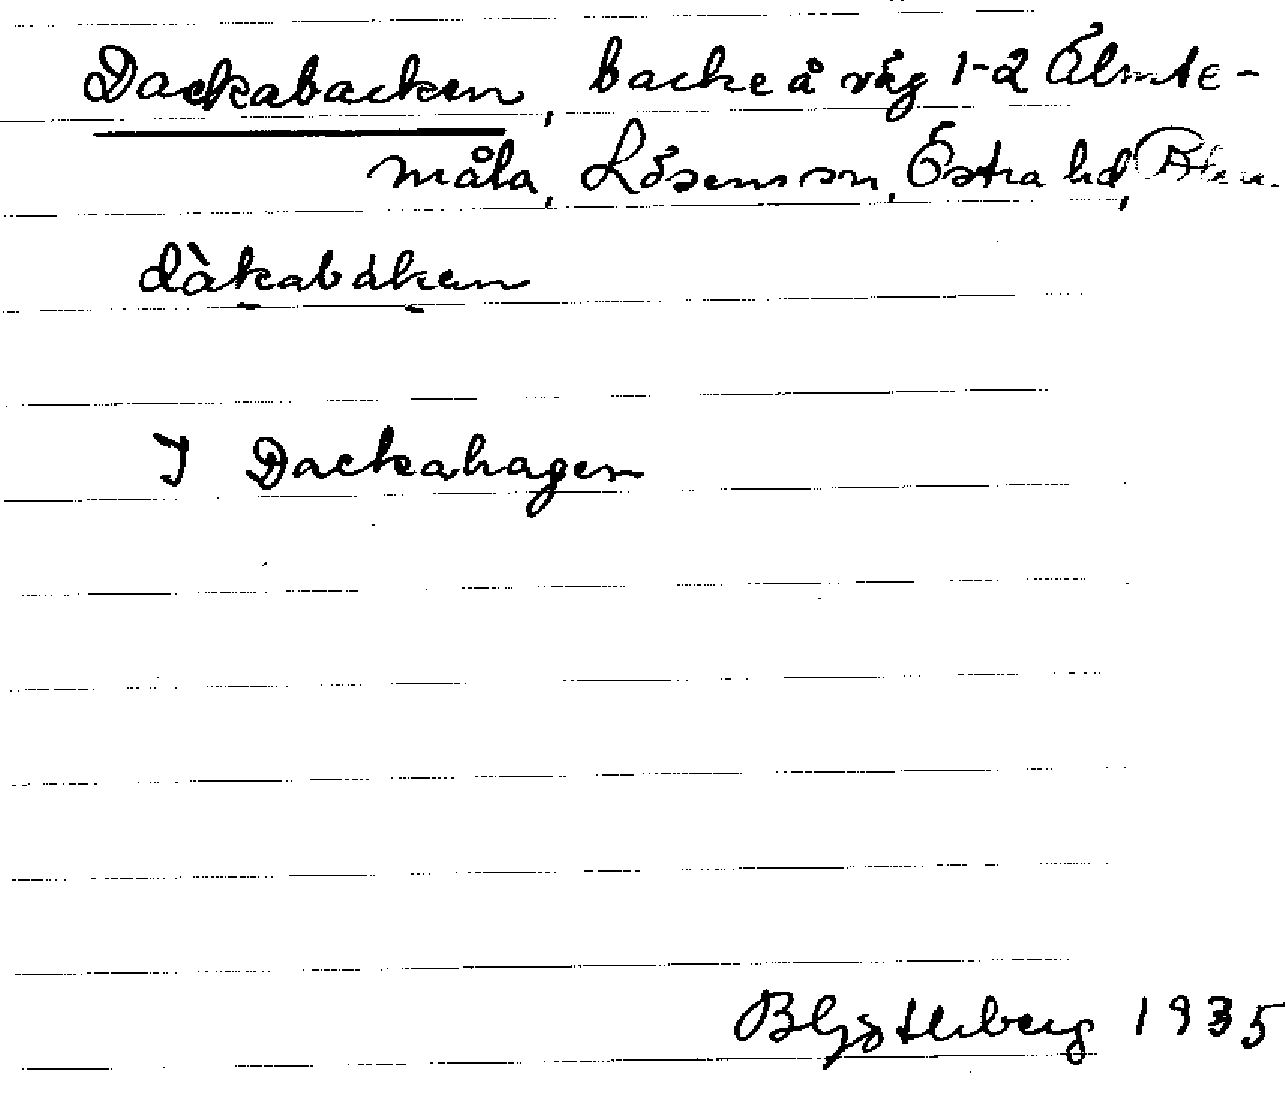 Dackabacken, backe å väg 1-2 Älmte-
måla, Lösens sn, Östra hd, Blek.
dàkabaken
I Dackahagen
B Göthberg 1935